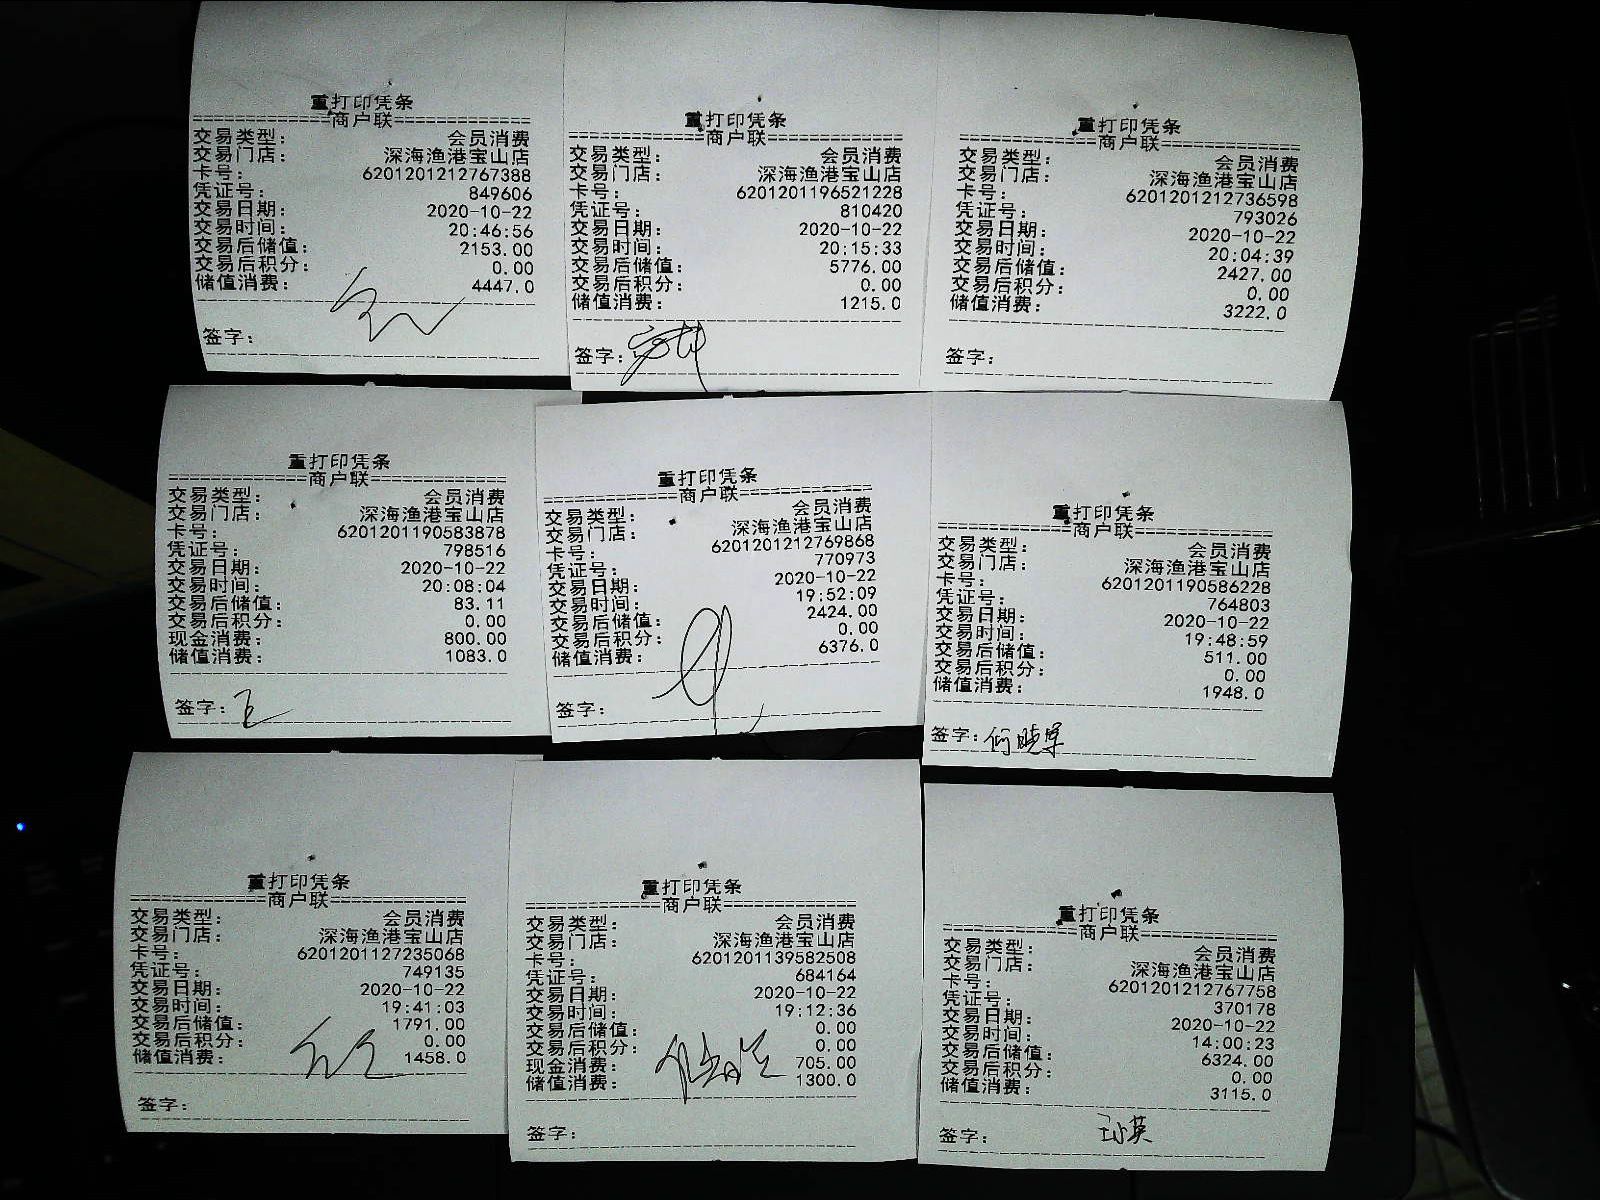 重打印凭条
==============商户联==============
交易类型: 会员消费
交易门店: 深海渔港宝山店
卡号: 6201201212767388
凭证号: 849606
交易日期: 2020-10-22
交易时间: 20:46:56
交易后储值: 2153.00
交易后积分: 0.00
储值消费: 4447.0
签字:
重打印凭条
==============商户联==============
交易类型: 会员消费
交易门店: 深海渔港宝山店
卡号: 6201201196521228
凭证号: 810420
交易日期: 2020-10-22
交易时间: 20:15:33
交易后储值: 5776.00
交易后积分: 0.00
储值消费: 1215.0
签字:
重打印凭条
==============商户联==============
交易类型: 会员消费
交易门店: 深海渔港宝山店
卡号: 6201201212736598
凭证号: 793026
交易日期: 2020-10-22
交易时间: 20:04:39
交易后储值: 2427.00
交易后积分: 0.00
储值消费: 3222.0
签字:
重打印凭条
==============商户联==============
交易类型: 会员消费
交易门店: 深海渔港宝山店
卡号: 6201201190583878
凭证号: 798516
交易日期: 2020-10-22
交易时间: 20:08:04
交易后储值: 83.11
交易后积分: 0.00
现金消费: 800.00
储值消费: 1083.0
签字:
重打印凭条
==============商户联==============
交易类型: 会员消费
交易门店: 深海渔港宝山店
卡号: 6201201212769868
凭证号: 770973
交易日期: 2020-10-22
交易时间: 19:52:09
交易后储值: 2424.00
交易后积分: 0.00
储值消费: 6376.0
签字:
重打印凭条
==============商户联==============
交易类型: 会员消费
交易门店: 深海渔港宝山店
卡号: 6201201190586228
凭证号: 764803
交易日期: 2020-10-22
交易时间: 19:48:59
交易后储值: 511.00
交易后积分: 0.00
储值消费: 1948.0
签字: 何晓军
重打印凭条
==============商户联==============
交易类型: 会员消费
交易门店: 深海渔港宝山店
卡号: 6201201127235068
凭证号: 749135
交易日期: 2020-10-22
交易时间: 19:41:03
交易后储值: 1791.00
交易后积分: 0.00
储值消费: 1458.0
签字:
重打印凭条
==============商户联==============
交易类型: 会员消费
交易门店: 深海渔港宝山店
卡号: 6201201139582508
凭证号: 684164
交易日期: 2020-10-22
交易时间: 19:12:36
交易后储值: 0.00
交易后积分: 0.00
现金消费: 705.00
储值消费: 1300.0
签字:
重打印凭条
==============商户联==============
交易类型: 会员消费
交易门店: 深海渔港宝山店
卡号: 6201201212767758
凭证号: 370178
交易日期: 2020-10-22
交易时间: 14:00:23
交易后储值: 6324.00
交易后积分: 0.00
储值消费: 3115.0
签字: